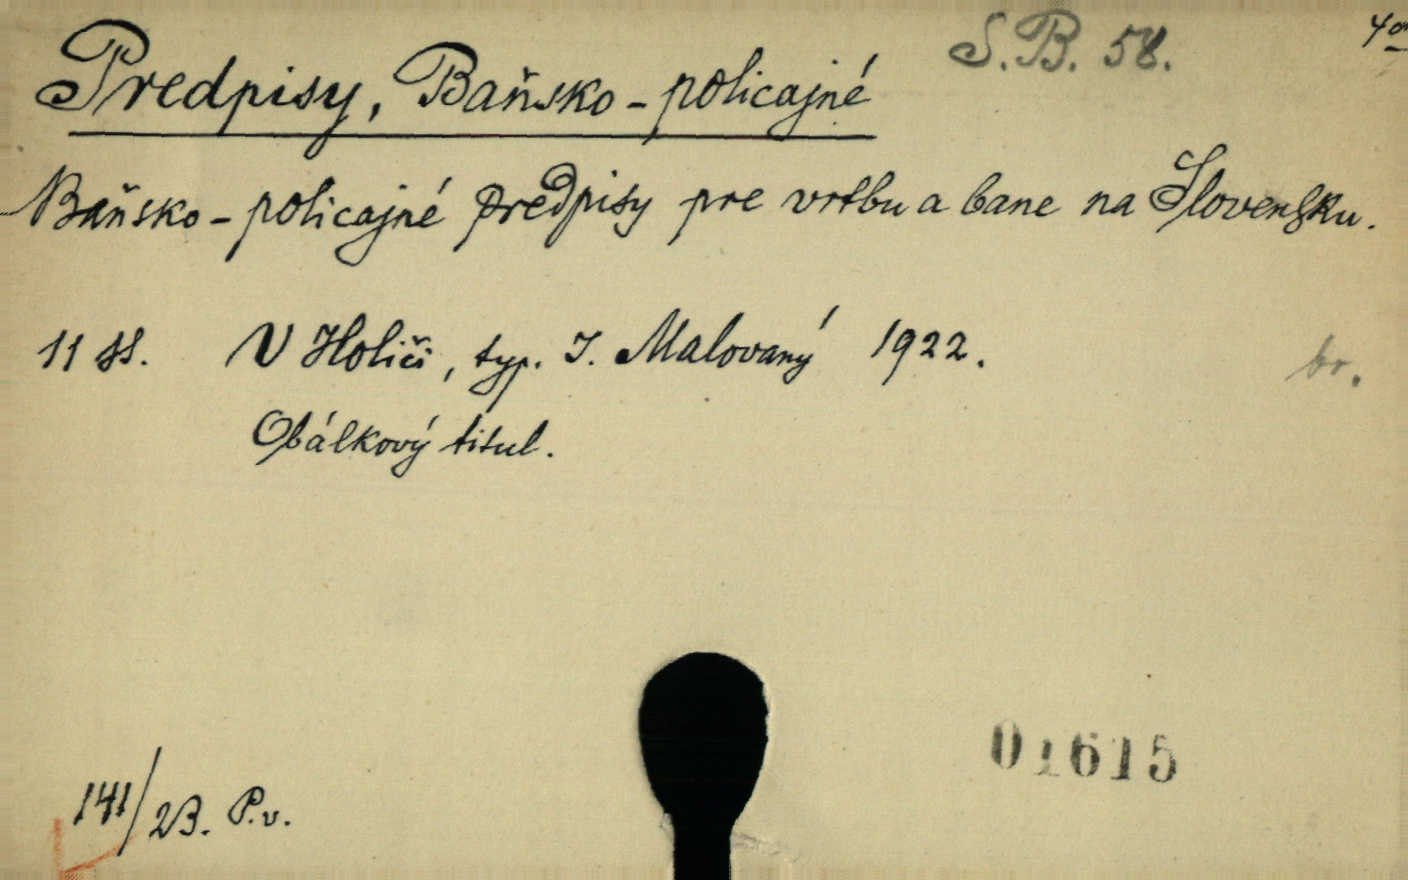 S.B. 58.
Predpisy, Baňsko-policajné
Baňsko-policajné predpisy pre vrtbu a bane na Slovensku.
11 ss. V Holiči, typ. J. Malovaný 1922. br.
Obálkový titul.
01615
141/23. P.v.